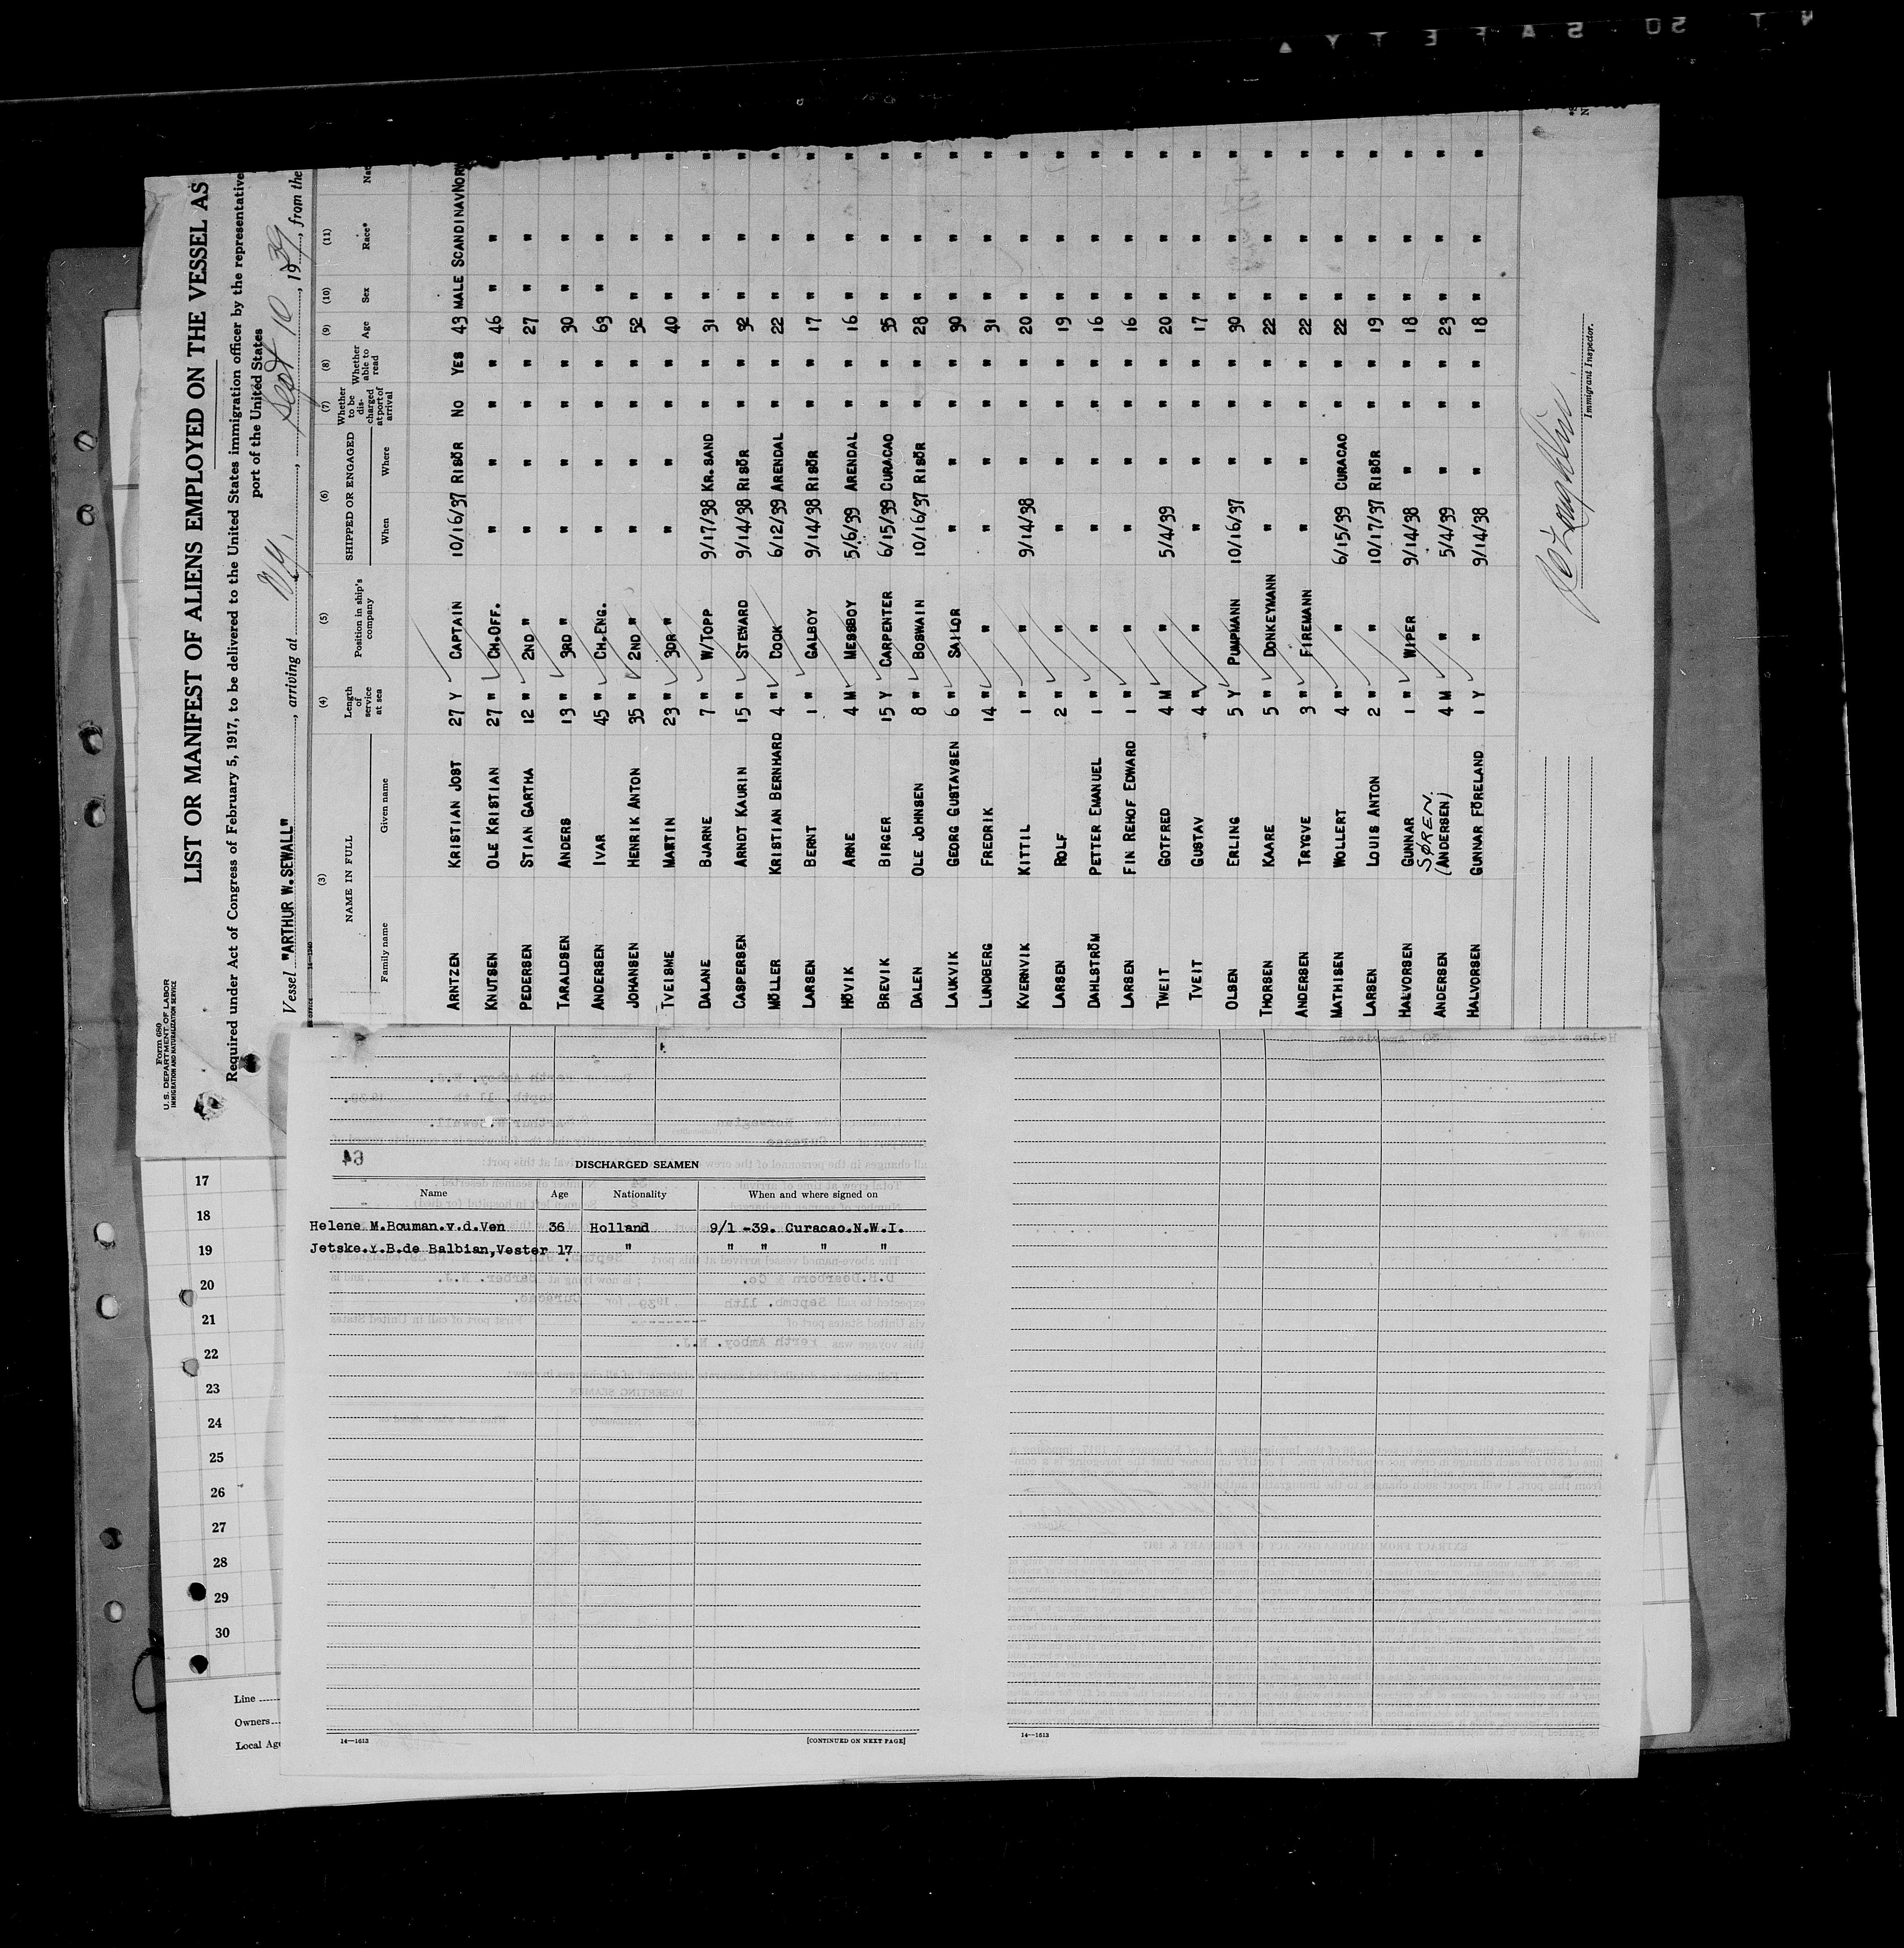 Form 689
U. S. DEPARTMENT OF LABOR
IMMIGRATION AND NATURALIZATION SERVICE
LIST OR MANIFEST OF ALIENS EMPLOYED ON THE VESSEL AS
Required under Act of Congress of February 5, 1917, to be delivered to the United States immigration officer by the representative
port of the United States
Vessel "ARTHUR W. SEWALL", arriving at N.Y., Sept 10, 1939, from the
(3) (4) (5) (6) (7) (8) (9) (10) (11)
NAME IN FULL Length of service at sea Position in ship's company SHIPPED OR ENGAGED Whether to be discharged at port of arrival Whether able to read Age Sex Race*
Family name Given name When Where
ARNTZEN KRISTIAN JOST 27 Y CAPTAIN 10/16/37 RISÖR NO YES 43 MALE SCANDINAV NORW
KNUTSEN OLE KRISTIAN 27 " CH.OFF. " " " " 46 " " "
PEDERSEN STIAN GARTHA 12 " 2ND " " " " " 27 " " "
TARALDSEN ANDERS 13 " 3RD " " " " " 30 " " "
ANDERSEN IVAR 45 " CH.ENG. " " " " 63 " " "
JOHANSEN HENRIK ANTON 35 " 2ND " " " " " 52 " " "
TVEISME MARTIN 23 " 3DR " " " " " 40 " " "
DALANE BJARNE 7 " W/TOPP 9/17/38 KR.SAND " " 31 " " "
CASPERSEN ARNDT KAURIN 15 " STEWARD 9/14/38 RISÖR " " 32 " " "
MÖLLER KRISTIAN BERNHARD 4 " COOK 6/12/39 ARENDAL " " 22 " " "
LARSEN BERNT 1 " GALBOY 9/14/38 RISÖR " " 17 " " "
HÖVIK ARNE 4 M MESSBOY 5/6/39 ARENDAL " " 16 " " "
BREVIK BIRGER 15 Y CARPENTER 6/15/39 CURACAO " " 35 " " "
DALEN OLE JOHNSEN 8 " BOSWAIN 10/16/37 RISÖR " " 28 " " "
LAUKVIK GEORG GUSTAVSEN 6 " SAILOR " " " " 30 " " "
LUNDBERG FREDRIK 14 " " " " " " 31 " " "
KVERNVIK KITTIL 1 " " 9/14/38 " " " 20 " " "
LARSEN ROLF 2 " " " " " " 19 " " "
DAHLSTRÖM PETTER EMANUEL 1 " " " " " " 16 " " "
LARSEN FIN REHOF EDWARD 1 " " " " " " 16 " " "
TWEIT GOTFRED 4 M " 5/4/39 " " " 20 " " "
TVEIT GUSTAV 4 " " " " " " 17 " " "
OLSEN ERLING 5 Y PUMPMANN 10/16/37 " " " 30 " " "
THORSEN KAARE 5 " DONKEYMANN " " " " 22 " " "
ANDERSEN TRYGVE 3 " FIREMANN " " " " 22 " " "
MATHISEN WOLLERT 4 " " 6/15/39 CURACAO " " 22 " " "
LARSEN LOUIS ANTON 2 " " 10/17/37 RISÖR " " 19 " " "
HALVORSEN GUNNAR 1 " WIPER 9/14/38 " " " 18 " " "
ANDERSEN SØREN. (ANDERSEN) 4 M " 5/4/39 " " " 23 " " "
HALVORSEN GUNNAR FÖRELAND 1 Y " 9/14/38 " " " 18 " " "
Immigrant Inspector.
DISCHARGED SEAMEN
Name Age Nationality When and where signed on
Helene M.Bouman.v.d.Ven 36 Holland 9/1 -39. Curacao.N.W.I.
Jetske.Y.B.de Balbian,Vester 17 " " " " "
14—1613 [CONTINUED ON NEXT PAGE]
14—1613
17
18
19
20
21
22
23
24
25
26
27
28
29
30
Line
Owners
Local Age